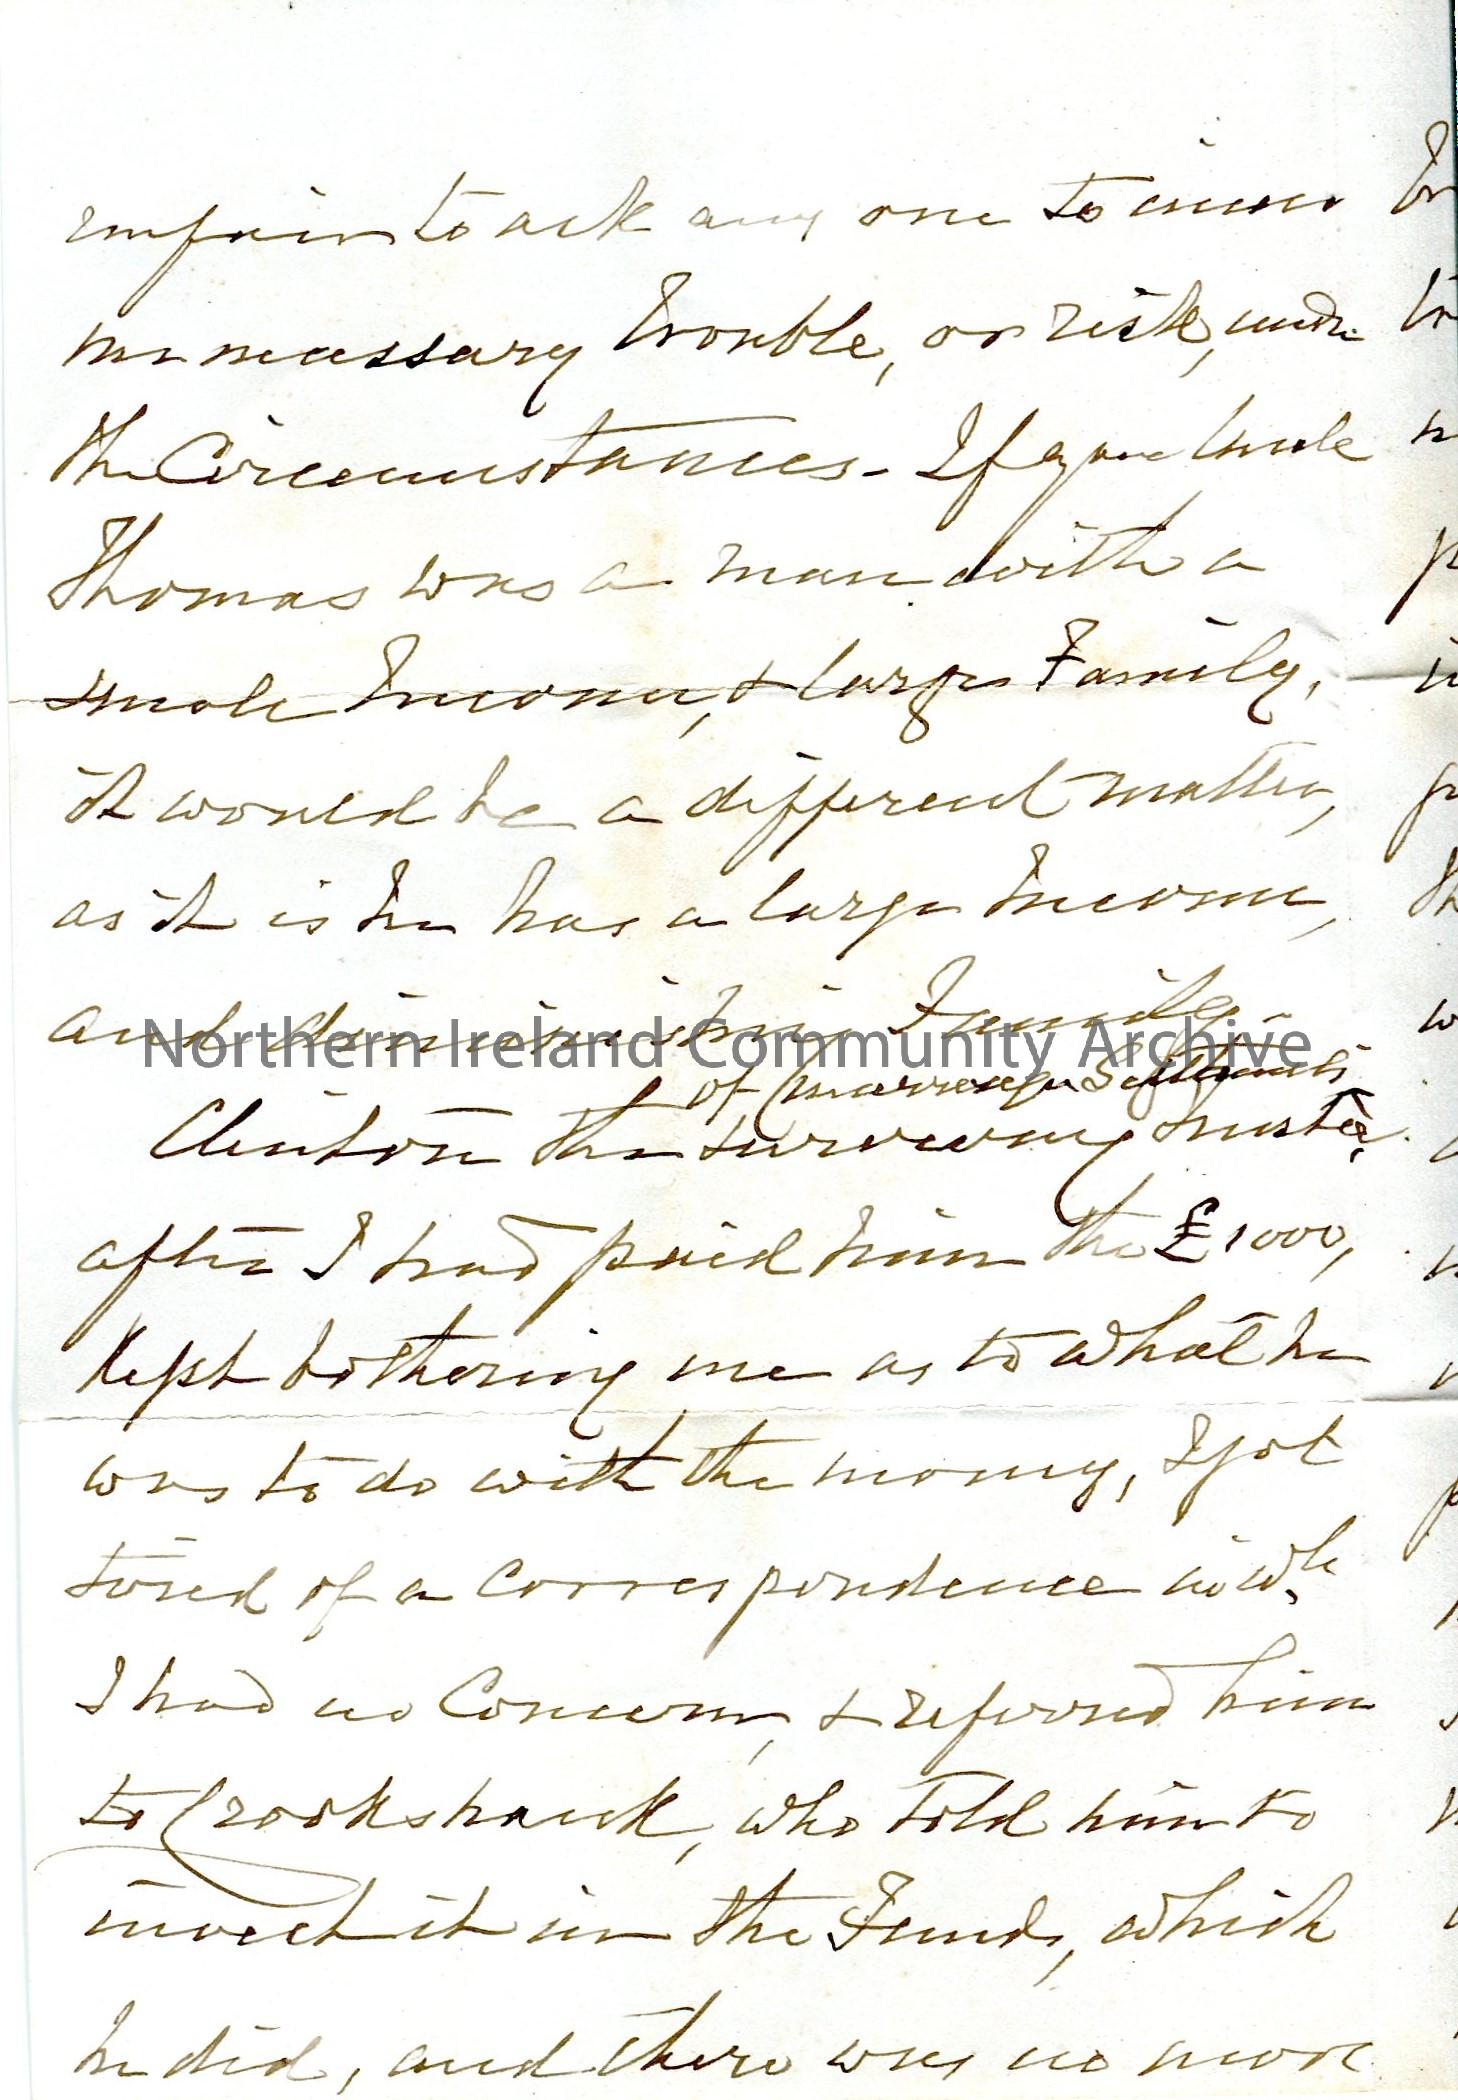 unfair to ask any one to incur
unnecessary trouble, or risk, under
the Circumstances - If your Uncle
Thomas was a man with a
small Income, & large Family,
it would be a different matter,
as it is he has a large Income,
and diminishing Family -
Northern Ireland Community Archive
of marriage Settlements
Clinton the surviving trustee,
after I had paid him the £1000,
kept bothering me as to what he
was to do with the money, I got
tired of a correspondence in wh.
I had no Concern, & referred him
to Crookshank, who told him to
invest it in the Funds, which
he did, and there was no more